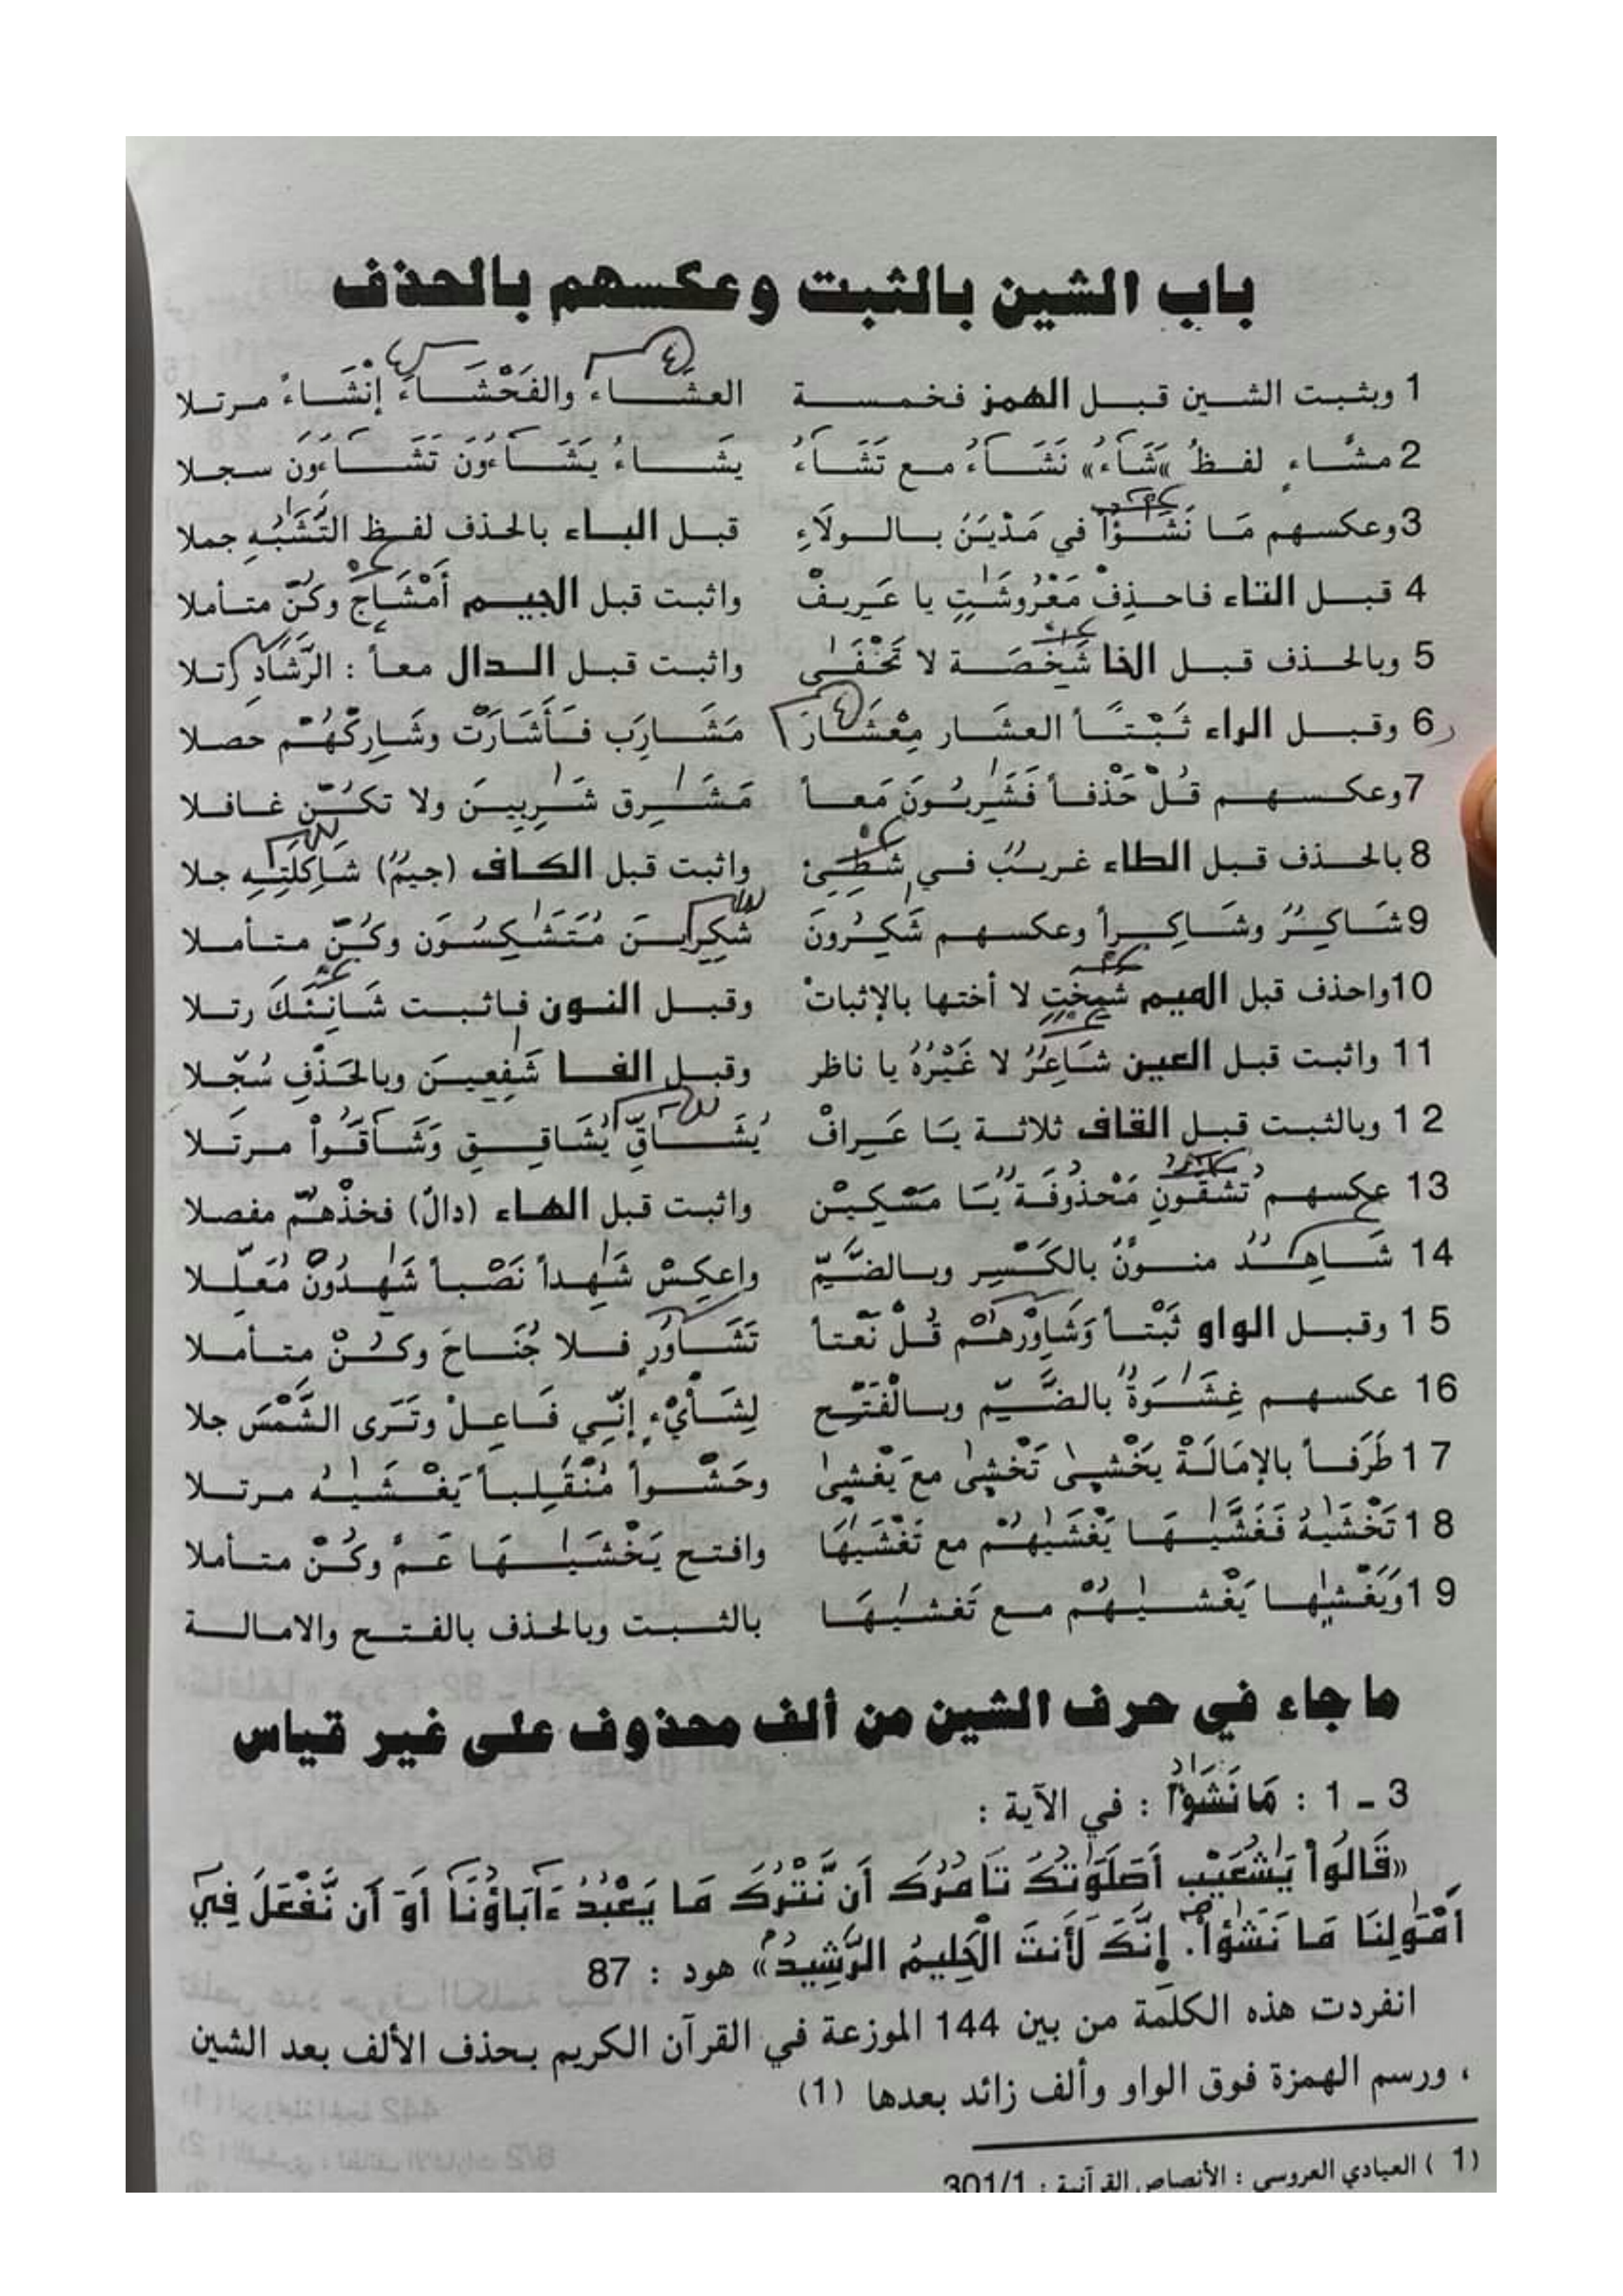 باب الشين بالثبت وعكسهم بالحذف
1 ويثبت الشين قبل الهمز فخمسة العشَاء والفَحْشَاءَ إنْشَاءً مرتلا
2 مشَّاءٍ لفظُ «شَآءُ» نَشَآءُ مع تَشَآءُ يشَاءُ يَشَآءُونَ تَشَآءُون سجلا
3 وعكسهم مَا نَشَؤُاْ في مَدْيَنَ بالولَاءِ قبل الباء بالحذف لفظ التَّشَبُهِ جملا
4 قبل التاء فاحذِفْ مَعْرُوشَتٍ يا عَرِيفْ واثبت قبل الجيم أَمْشَاجٍ وكنّ متأملا
5 وبالحذف قبل الخا شَخِصَة لا تَخْفَى واثبت قبل الدال معاً : الرَّشَادِ رتلا
6 وقبل الراء ثَبْتاً العشَار مِعْشَارَ مَشَارِب فَأَشَارَتْ وشَارِكْهُمْ حصلا
7 وعكسهم قُلْ حَذْفاً فَشَرِبُونَ مَعاً مَشَرِق شَرِبِينَ ولا تكنّ غافلا
8 بالحذف قبل الطاء غريبٌ في شَطِئِ واثبت قبل الكاف (جيمٌ) شاكلَتِهِ جلا
9 شَاكِرٌ وشَاكِراً وعكسهم شَكِرُونَ شَكِرِينَ مُتَشَكِسُون وكُنّ متأملا
10 واحذف قبل الميم شمِخَتٍ لا أختها بالإثباتْ وقبل النون فاثبت شَانِئَكَ رتلا
11 واثبت قبل العين شَاعِرٌ لا غَيْرُهُ يا ناظر وقبل الفا شَفِعِينَ وبالحَذْفِ سُجّلا
12 وبالثبت قبل القاف ثلاثة يَا عَرافْ يُشَاقِّ يُشَاقِقِ وَشَآقُّواْ مرتَلا
13 عكسهم تَشَقُّونِ مَحْذُوفَة يَا مَسْكِيْن واثبت قبل الهاء (دالٌ) فخذْهُمْ مفصلا
14 شَاهِدٌ منوّنٌ بالكَسْرِ وبالضَّمِّ واعكِسْ شَهِداً نَصْباً شَهِدُونْ مُعَلّلا
15 وقبل الواو ثَبْتاً وَشَاوِرْهُمْ قُلْ نَعْتاً تَشَاوُرٍ فلا جُنَاحَ وكنْ متأملا
16 عكسهم غِشَوَةٌ بالضَّمِّ وبالْفَتْحِ لِشَأْيْءٍ إنِّي فَاعِلْ وتَرَى الشَّمْسَ جلا
17 طَرَفاً بالإمَالَةْ يَخْشى تَخْشى معَ يَغْشى وحَشْواً مُنْقَلِباً يَغْشَيهُ مرتلا
18 تَخْشَيهُ فَغَشَّيهَا يَغْشَيهُمْ مع تَغْشَيهَا وافتح يَخْشَيهَا عَمَّ وكُنْ متأملا
19 وَيَغْشيها يَغْشيهُمْ مع تَغشيهَا بالثبت وبالحذف بالفتح والامالة
ما جاء في حرف الشين من ألف محذوف على غير قياس
3 ـ 1 : مَا نَشَؤُاْ : في الآية :
«قَالُواْ يَشُعَيْبُ أَصَلَوَتُكَ تَامُرُكَ أَن نَّتْرُكَ مَا يَعْبُدُ ءَابَاؤُنَا أَوَ أَن نَّفْعَلَ فِي
أَمْوَلِنَا مَا نَشَؤُاْ. إِنَّكَ لَأَنتَ الْحَلِيمُ الرَّشِيدُ» هود : 87
انفردت هذه الكلمة من بين 144 الموزعة في القرآن الكريم بحذف الألف بعد الشين
، ورسم الهمزة فوق الواو وألف زائد بعدها (1)
(1) العيادي العروسي : الأنصاص القرآنية : 301/1